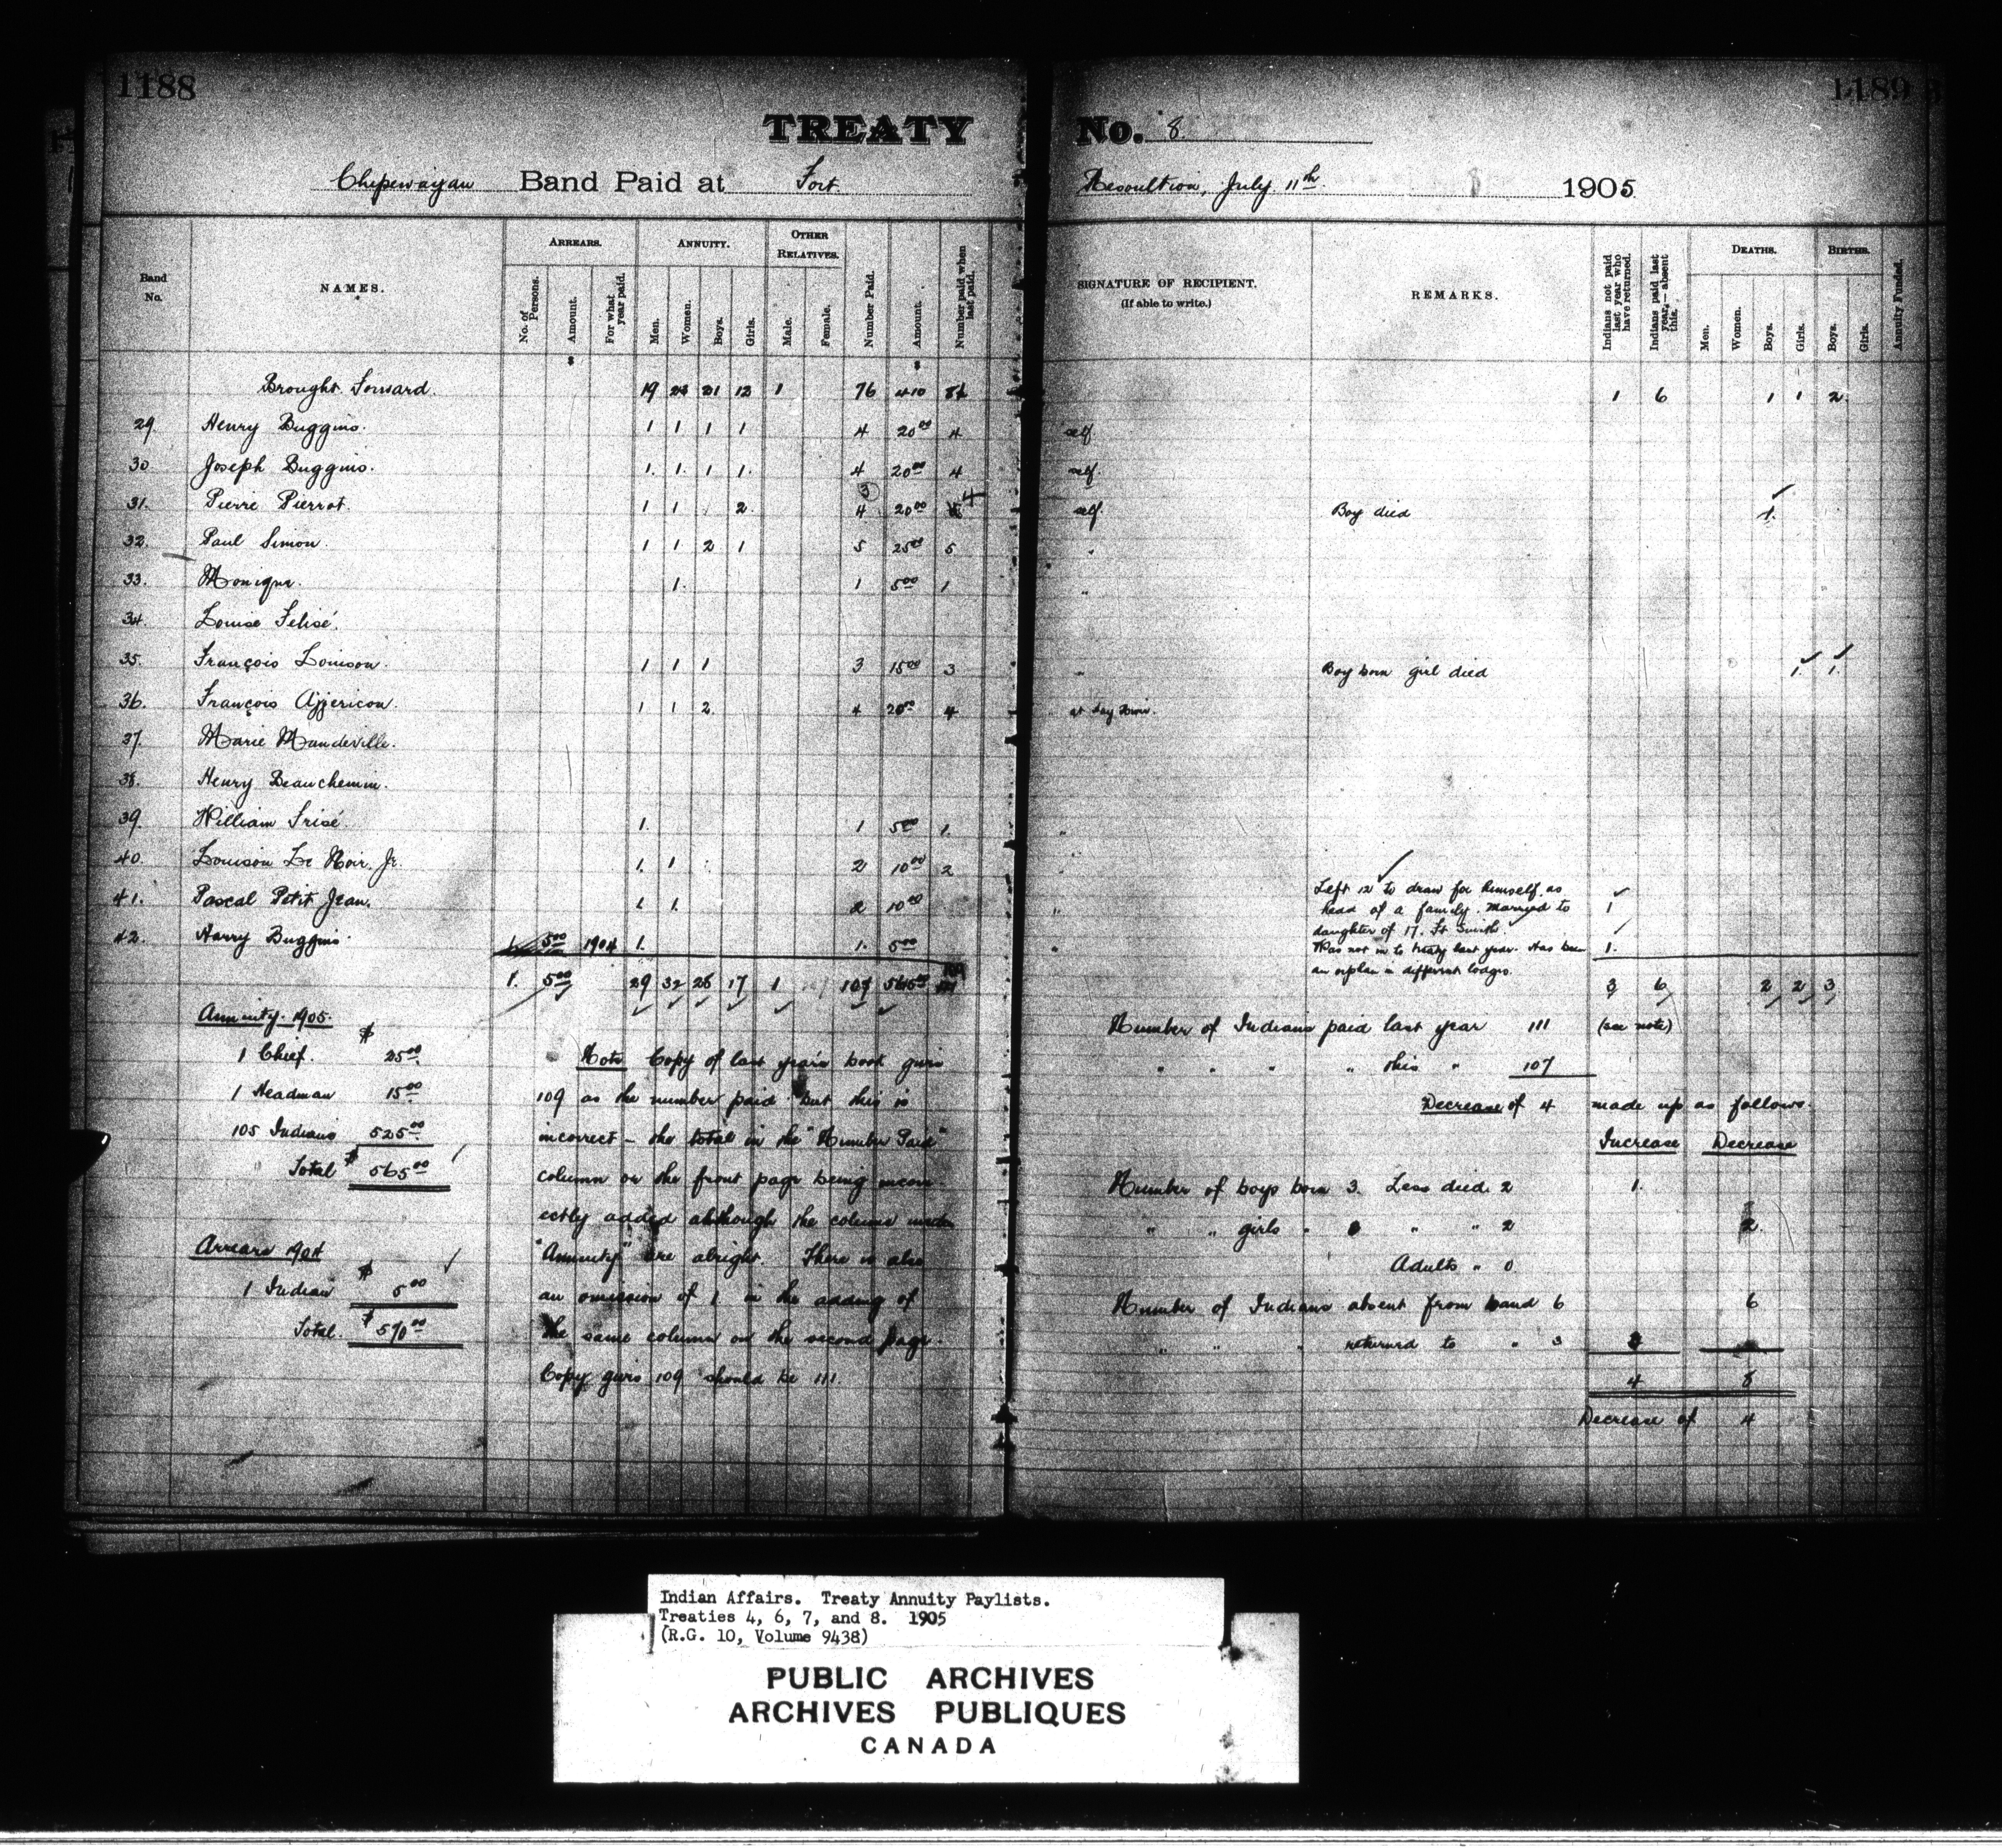 1188
1189
TREATY No. 8
Chipewayan Band Paid at Fort Resoultion, July 11th 1905
Band No.
NAMES.
ARREARS.
No. of Persons.
Amount.
For what year paid.
ANNUITY.
Men.
Women.
Boys.
Girls.
OTHER RELATIVES.
Male.
Female.
Number Paid.
Amount.
Number paid when last paid.
SIGNATURE OF RECIPIENT.
(If able to write.)
REMARKS.
Indians not paid last year who have returned.
Indians paid last year,—absent this.
DEATHS.
Men.
Women.
Boys.
Girls.
BIRTHS.
Boys.
Girls.
Annuity Funded.
$ $
Brought Forward. 19 21 12 1 76 410 1 6 1 1 2
29. Henry Buggins. 1 1 1 1 4 20.00 4 self.
30. Joseph Buggins. 1. 1. 1 1. 4 20.00 4 self
31. Pierre Pierrot. 1 1 2. 3 4 20.00 4 self. Boy died 1.
32. Paul Simon. 1 1 2 1 5 25.00 5 "
33. Monique. 1. 1 5.00 1 "
34. Louise Felisé.
35. François Louison. 1 1 1 3 15.00 3 " Boy born girl died 1. 1.
36. François 1 1 2. 4 20.00 4 " at Hay River.
37. Marie Mandeville.
38. Henry Beauchemin.
39. William Frisé. 1. 1 5.00 1. "
40. Louison Le Noir. Jr. 1. 1 2 10.00 2 "
41. Pascal Petit Jean. 1. 1. 2 10.00 " Left 12 to draw for himself as head of a family. Married to daughter of 17. Ft Smith. 1
42. Harry Buggins. 1. 5.00 1904 1. 1. 5.00 " Was not in to treaty last year. Has been an orphan in different lodges. 1.
1. 5.00 29 32 26 17 1 107 565.00 3 6 2 2 3
Annuity. 1905.
1 Chief. $ 25.00
1 Headman 15.00
105 Indians 525.00
Total $ 565.00
Arrears 1904
1 Indian $ 5.00
Total. $ 570.00
Note Copy of last year's book gives
109 as the number paid but this is
incorrect – the total in the "Number Paid"
column on the front page being incorr-
ectly added although the column under
"Annuity" are alright. There is also
an omission of 1 in the adding of
the same column on the second page.
Copy gives 109 should be 111.
Number of Indians paid last year 111 (see note)
" " " " this " 107
Decrease of 4 made up as follows.
Increase Decrease
Number of boys born 3. Less died 2 1.
" " girls " 0 " " 2 2.
Adults " 0
Number of Indians absent from band 6 6
" " " returned to " 3 3
4 8
Decrease of 4
Indian Affairs. Treaty Annuity Paylists.
Treaties 4, 6, 7, and 8. 1905
(R.G. 10, Volume 9438)
PUBLIC ARCHIVES
ARCHIVES PUBLIQUES
CANADA